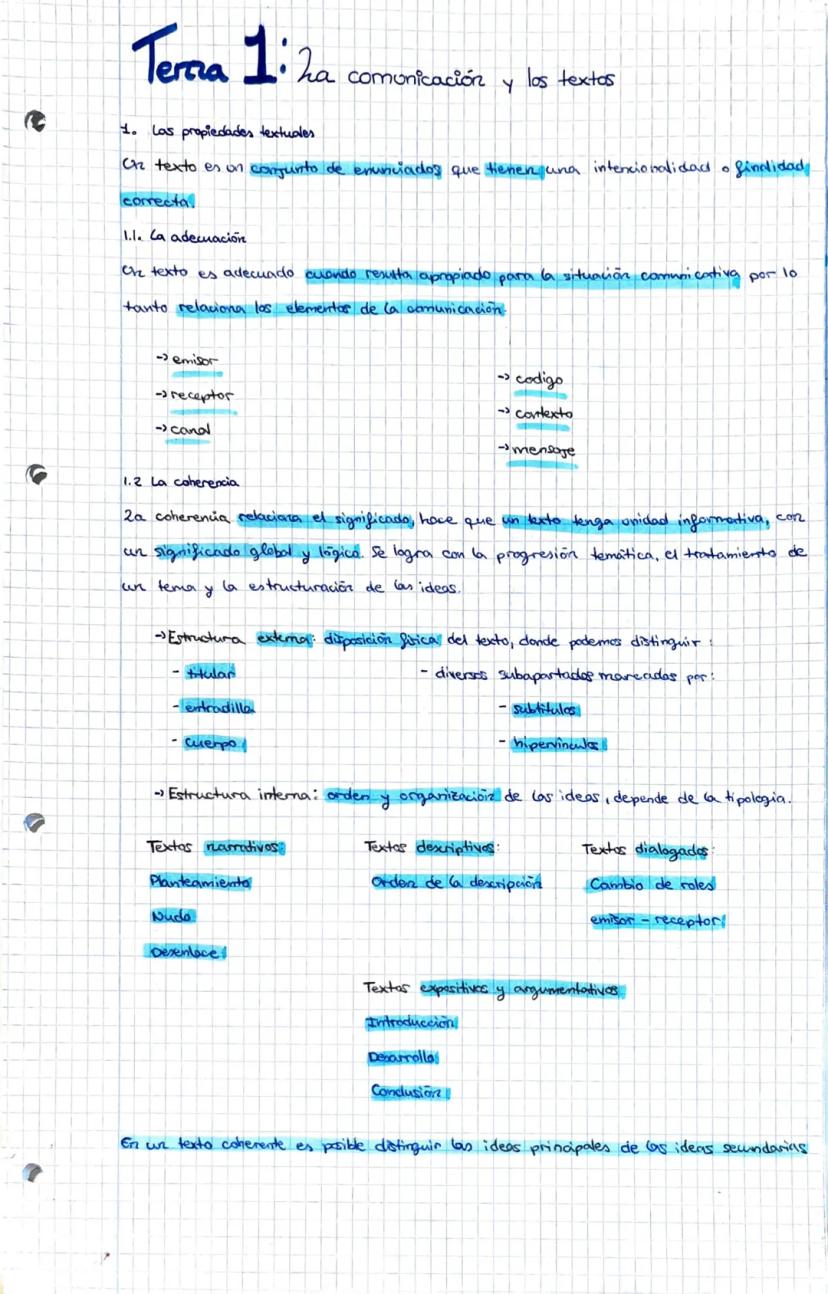 Tema 1: La comunicación y los textos
1. Las propiedades textuales
Un texto es un conjunto de enunciados que tienen una intencionalidad o finalidad
correcta.
1.1. La adecuación
Un texto es adecuado cuando resulta apropiado para la situación comunicativa por lo
tanto relaciona los elementos de la comunicación.
-> emisor
-> receptor
-> canal
-> codigo
-> contexto
-> mensaje
1.2 La coherencia
La coherencia relaciona el significado, hace que un texto tenga unidad informativa, con
un significado global y lógico. Se logra con la progresión temática, el tratamiento de
un tema y la estructuración de las ideas.
-> Estructura externa: disposición física del texto, donde podemos distinguir:
- titular
- entradilla
- cuerpo
- diversos subapartados marcados por:
- subtítulos
- hipervínculos
-> Estructura interna: orden y organización de las ideas, depende de la tipología.
Textos narrativos:
Planteamiento
Nudo
Desenlace
Textos descriptivos:
Orden de la descripción
Textos dialogados:
Cambio de roles
emisor - receptor
Textos expositivos y argumentativos
Introducción
Desarrollo
Conclusión
En un texto coherente es posible distinguir las ideas principales de las ideas secundarias